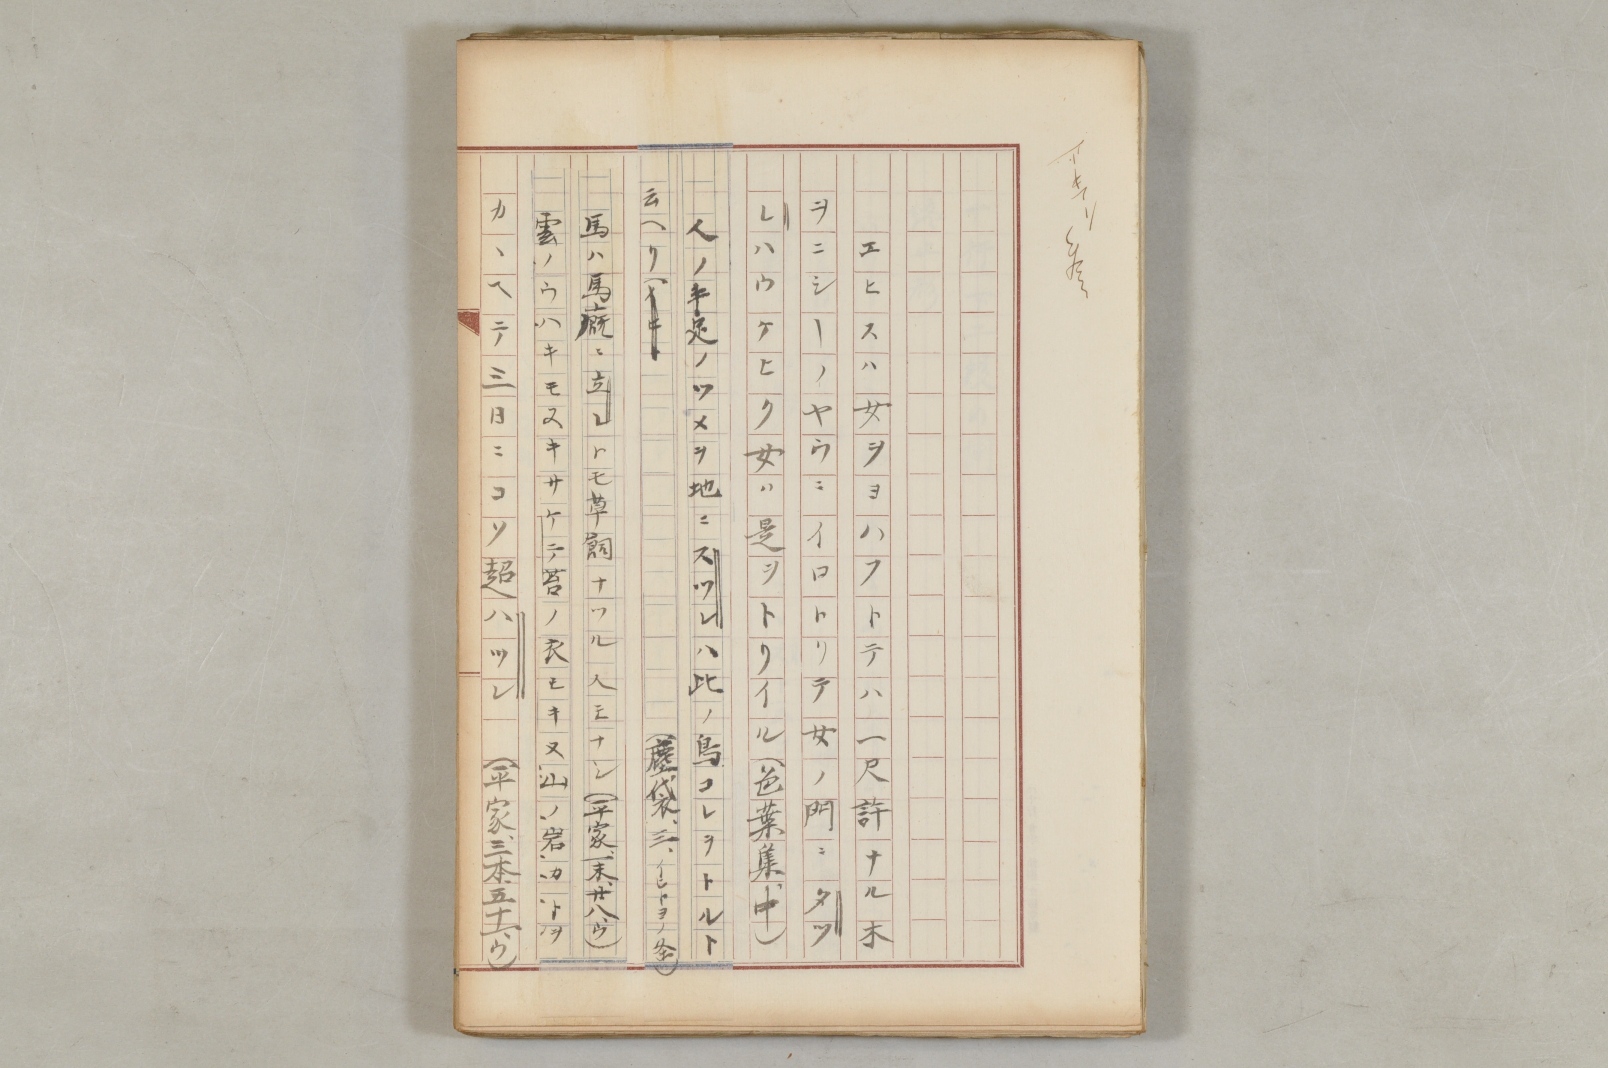 エヒスハ女ヲヨハフトテハ一尺許ナル木
ヲニシーノヤウニイロトリテ女ノ門ニタツ
レハウケヒク女ハ是ヲトリイル(色葉集、中)
人ノ手足ノツメヲ地ニスツレハ此ノ鳥コレヲトルト
云ヘリ
(塵袋、三、
馬ハ馬廐ニ立レトモ草飼ナツル人モナシ(平家、一末、廿八、ウ)
雲ノウハキモヌキサケテ苔ノ衣モキヌ山ノ岩カトヲ
カヽヘテ三日ニコソ超ハツレ (平家、三本、五十一、ウ)